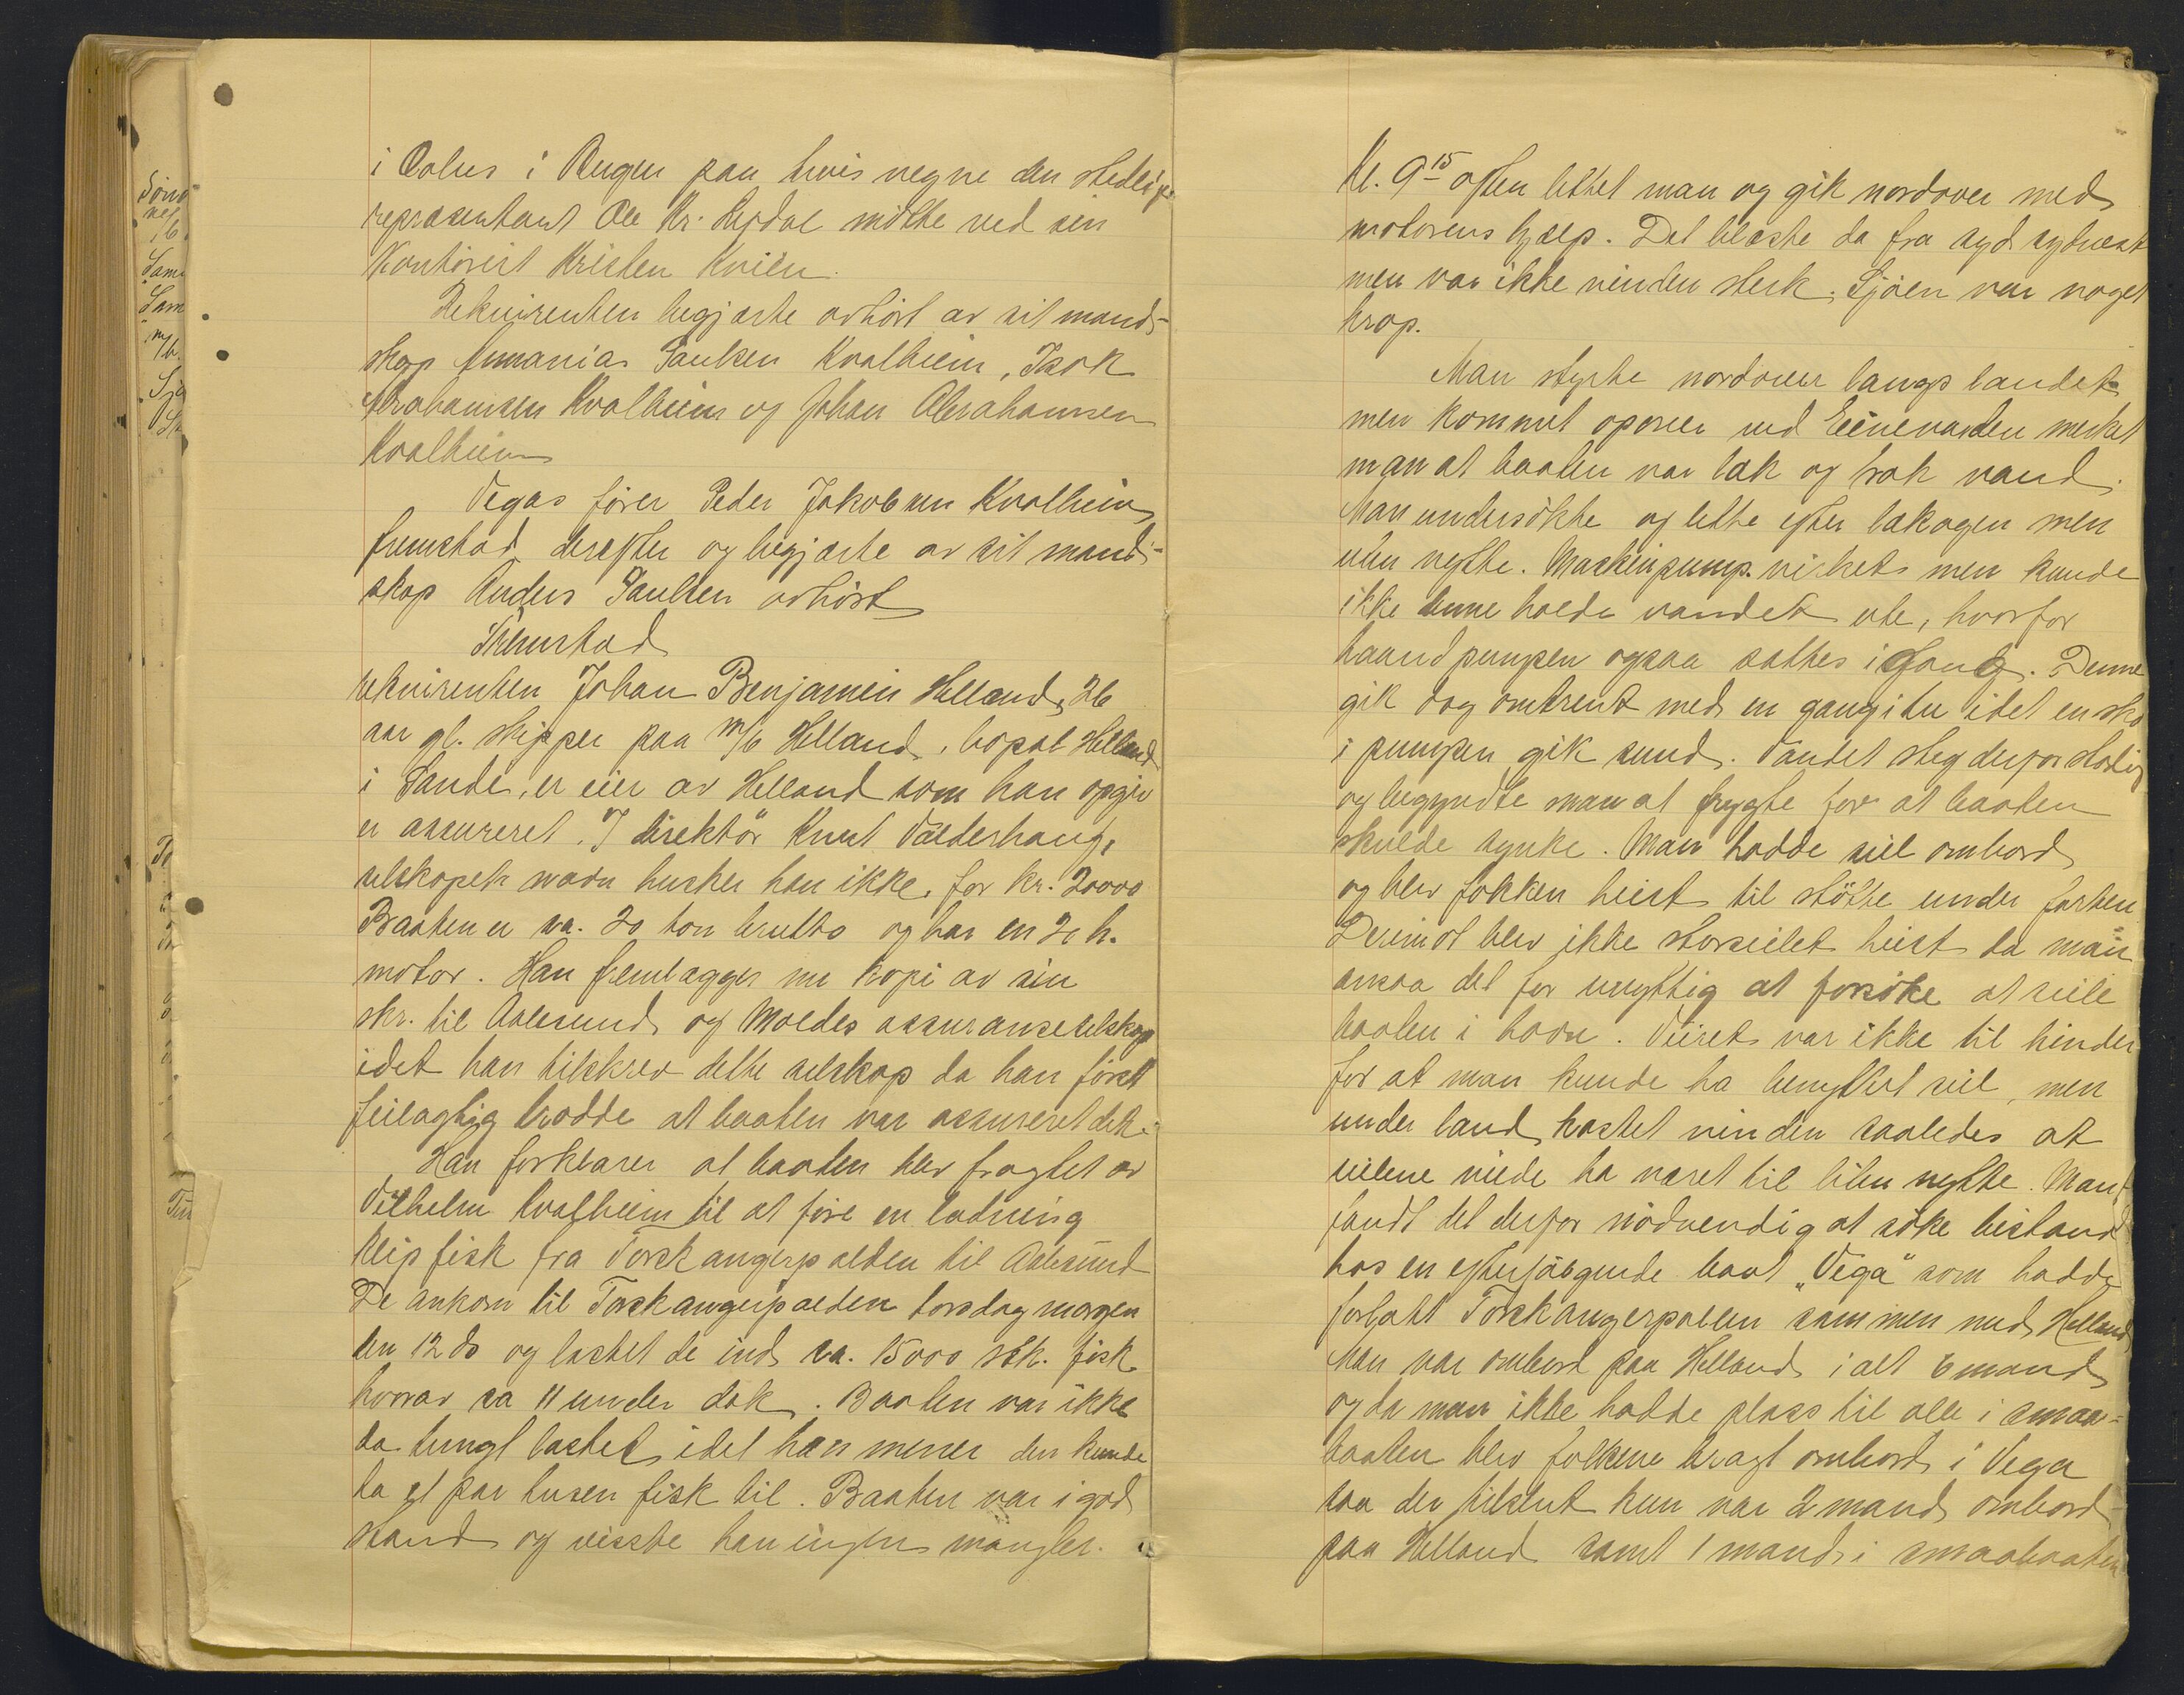 i Aalus i Bergen paa hvis vegne den stedlige
repræsentant Ole Kr. Legdal mötte ved sin
Kontorist Kristen Kviln.
Rekvirenten begjærte avhört av sit mand-
skap Ananias Paulsen Kvalheim, Isak
Abrahamsen Kvalheim og Johan Abrahamsen
Kvalheim
Vegas förer Peder Jakobsen Kvalheim
fremstod derefter og begjærte av sit mand-
skap Anders Paulsen avhört
Fremstod
rekvirenten Johan Benjamin Helland, 26
aar gl. skipper paa m/b Helland, bopæl Helland
i Sande, er eier av Helland som han opgir
er assureret. I direktör Knut Valderhaug,
selskapets navn husker han ikke, for kr. 20000
Baaten er ca. 20 ton brutto og har en 20 h.
motor. Han fremlægger nu kopi av sin
skr. til Aalesund og Moldes assuranseselskap
idet han tilskrev dette selskap da han först
feilagtig trodde at baaten var assureret det.
Han forklarer at baaten blev fragtet av
Vilhelm Kvalheim til at före en ladning
klipfisk fra Torskangerpolden til Aalesund
De ankom til Torskangerpolden torsdag morgen
den 12 ds og lastet de ind ca. 15000 stk. fisk
hvorav ca 11 under dæk. Baaten var ikke
da tungt lastet idet han mener den kunde
ta et par tusen fisk til. Baaten var i god
stand og visste han ingen mangler.
Kl. 9 15 aften lettet man og gik nordover med
motorens hjælp. Det blæste da fra syd sydvest
men var ikke vinden sterk. Sjöen var noget
krap.
Man styrte nordover langs landet
men kommet opover ved Einevarden merket
man at baaten var læk og trak vand.
Man undersökte og lette efter lækagen men
uten nytte. Maskinpump. virket men kunde
ikke denne holde vandet ute, hvorfor
haandpumpen ogsaa sattes i Gang. Denne
gik dog omtrent med en gang itu idet en sko
i pumpen gik sund. Vandet steg derfor stadig
og begyndte man at frygte for at baaten
skulde synke. Man hadde seil ombord
og blev fokken heist til stötte under farten
Derimot blev ikke storseilet heist da man
ansaa det for unyttig at forsöke at seile
baaten i havn. Veiret var ikke til hinder
for at man kunde ha benyttet seil, men
under land kastet vinden saaledes at
seilene vilde ha været til liten nytte. Man
fandt det derfor nödvendig at söke bistand
hos en efterfölgende baat "Vega" som hadde
forlatt Torskangerpollen sammen med Helland
Man var ombord paa Helland ialt 6 mand
og da man ikke hadde plass til alle i smaa-
baaten blev folkene bragt ombord i Vega
saa der tilslut kun var 2 mand ombord
paa Helland samt 1 mand i smaabaaten